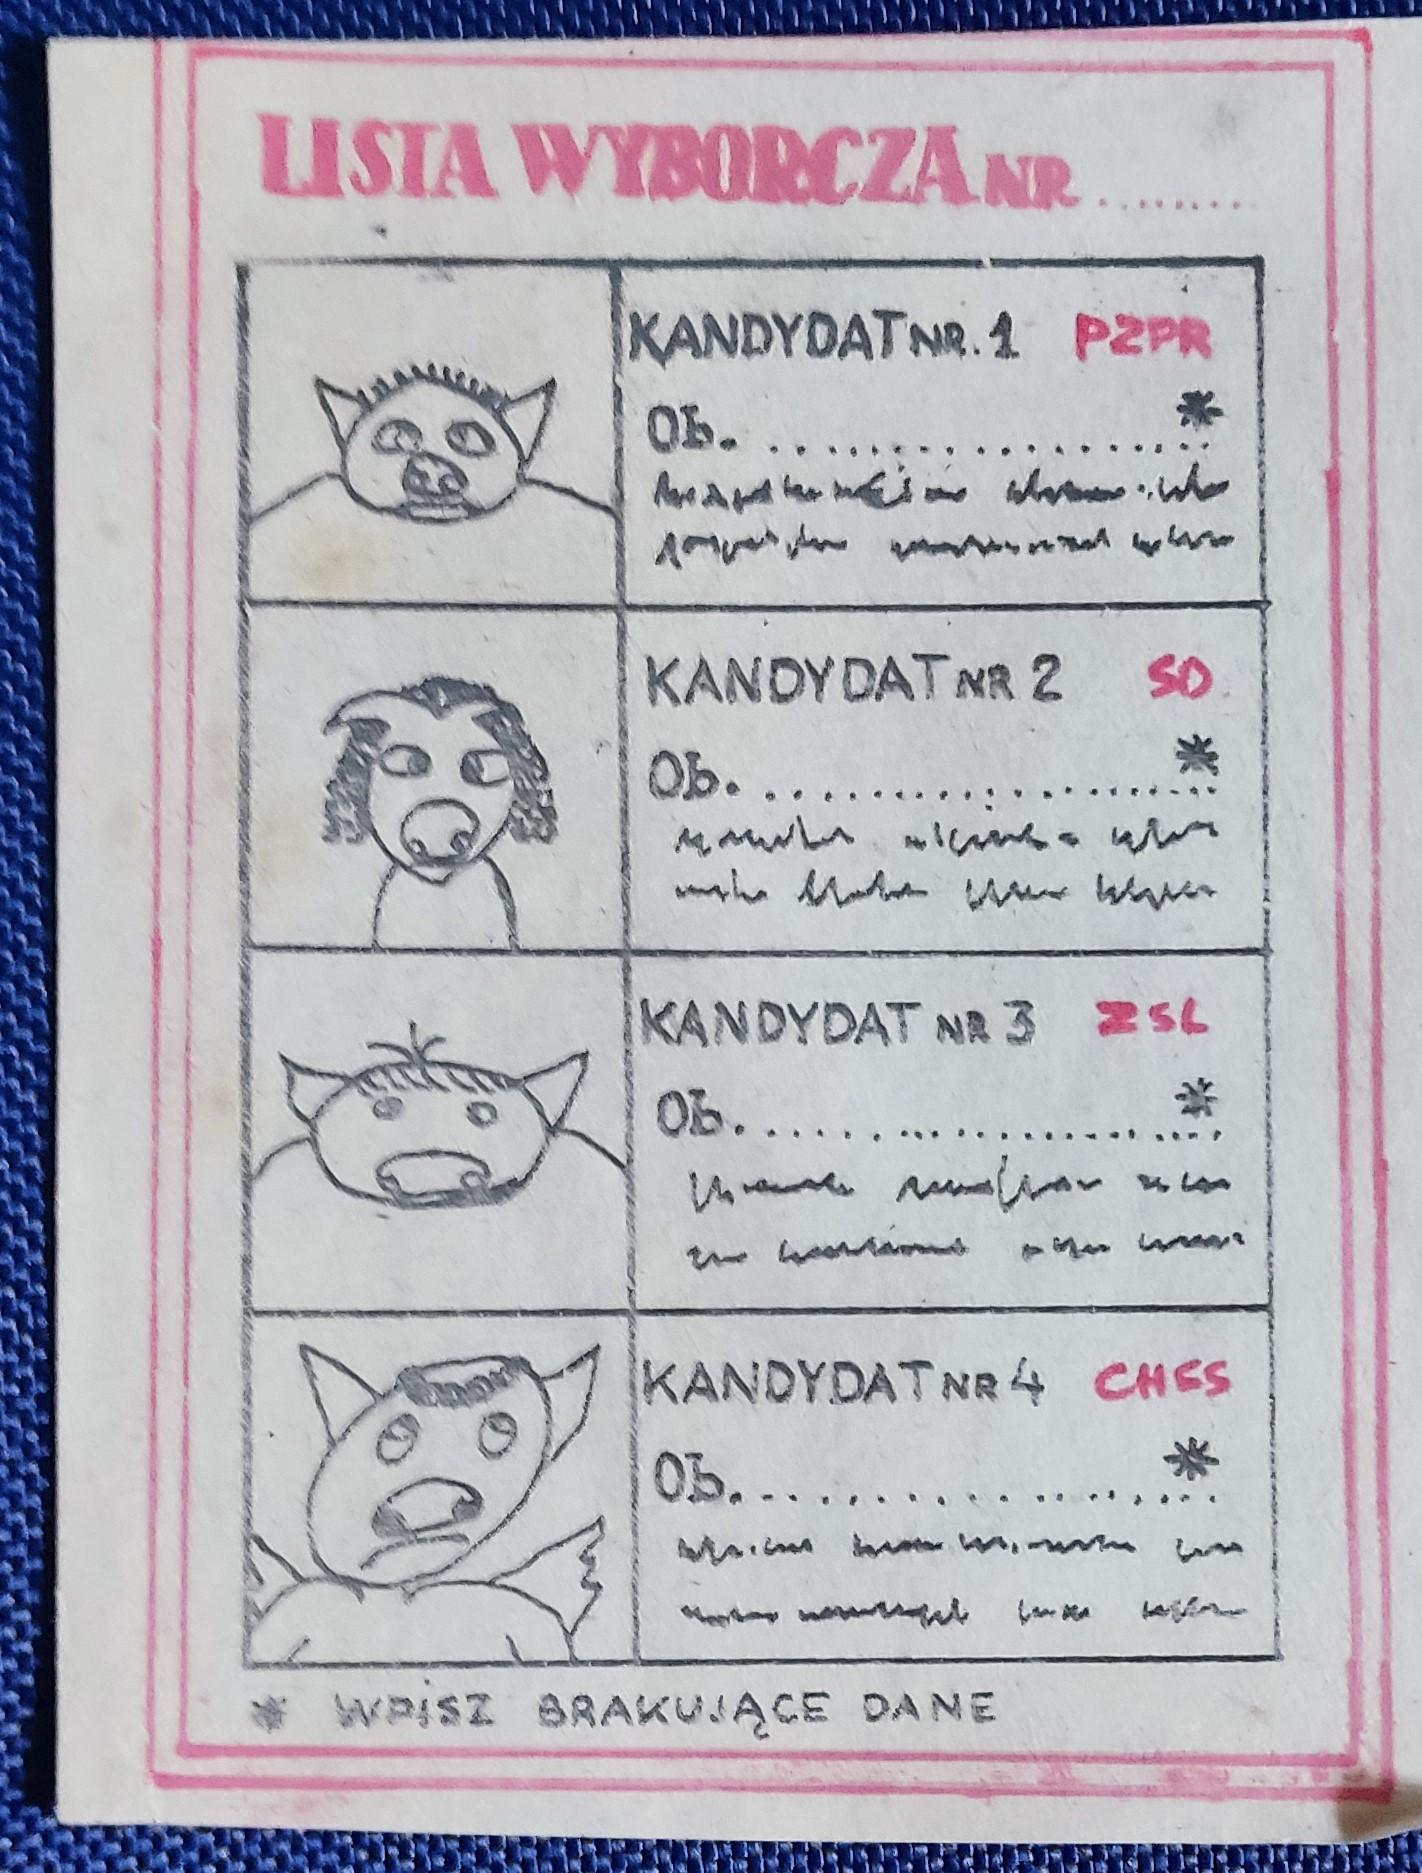 LISTA WYBORCZA NR.........
KANDYDAT NR. 1 PZPR
OB. ..................... *
KANDYDAT NR 2 SD
OB. ..................... *
KANDYDAT NR 3 ZSL
OB. ..................... *
KANDYDAT NR 4 CHSS
OB. ..................... *
* WPISZ BRAKUJĄCE DANE